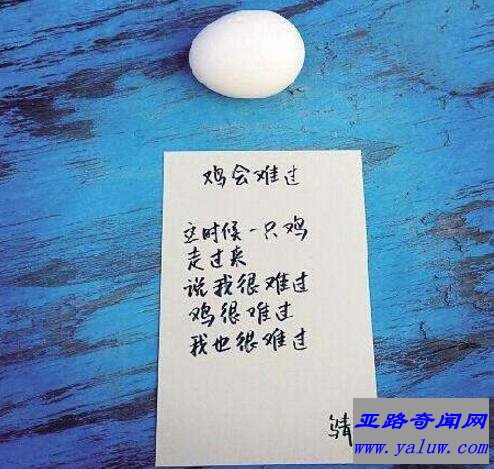 鸡会难过
这时候一只鸡
走过来
说我很难过
鸡很难过
我也很难过
亚路奇闻网
www.yaluw.com